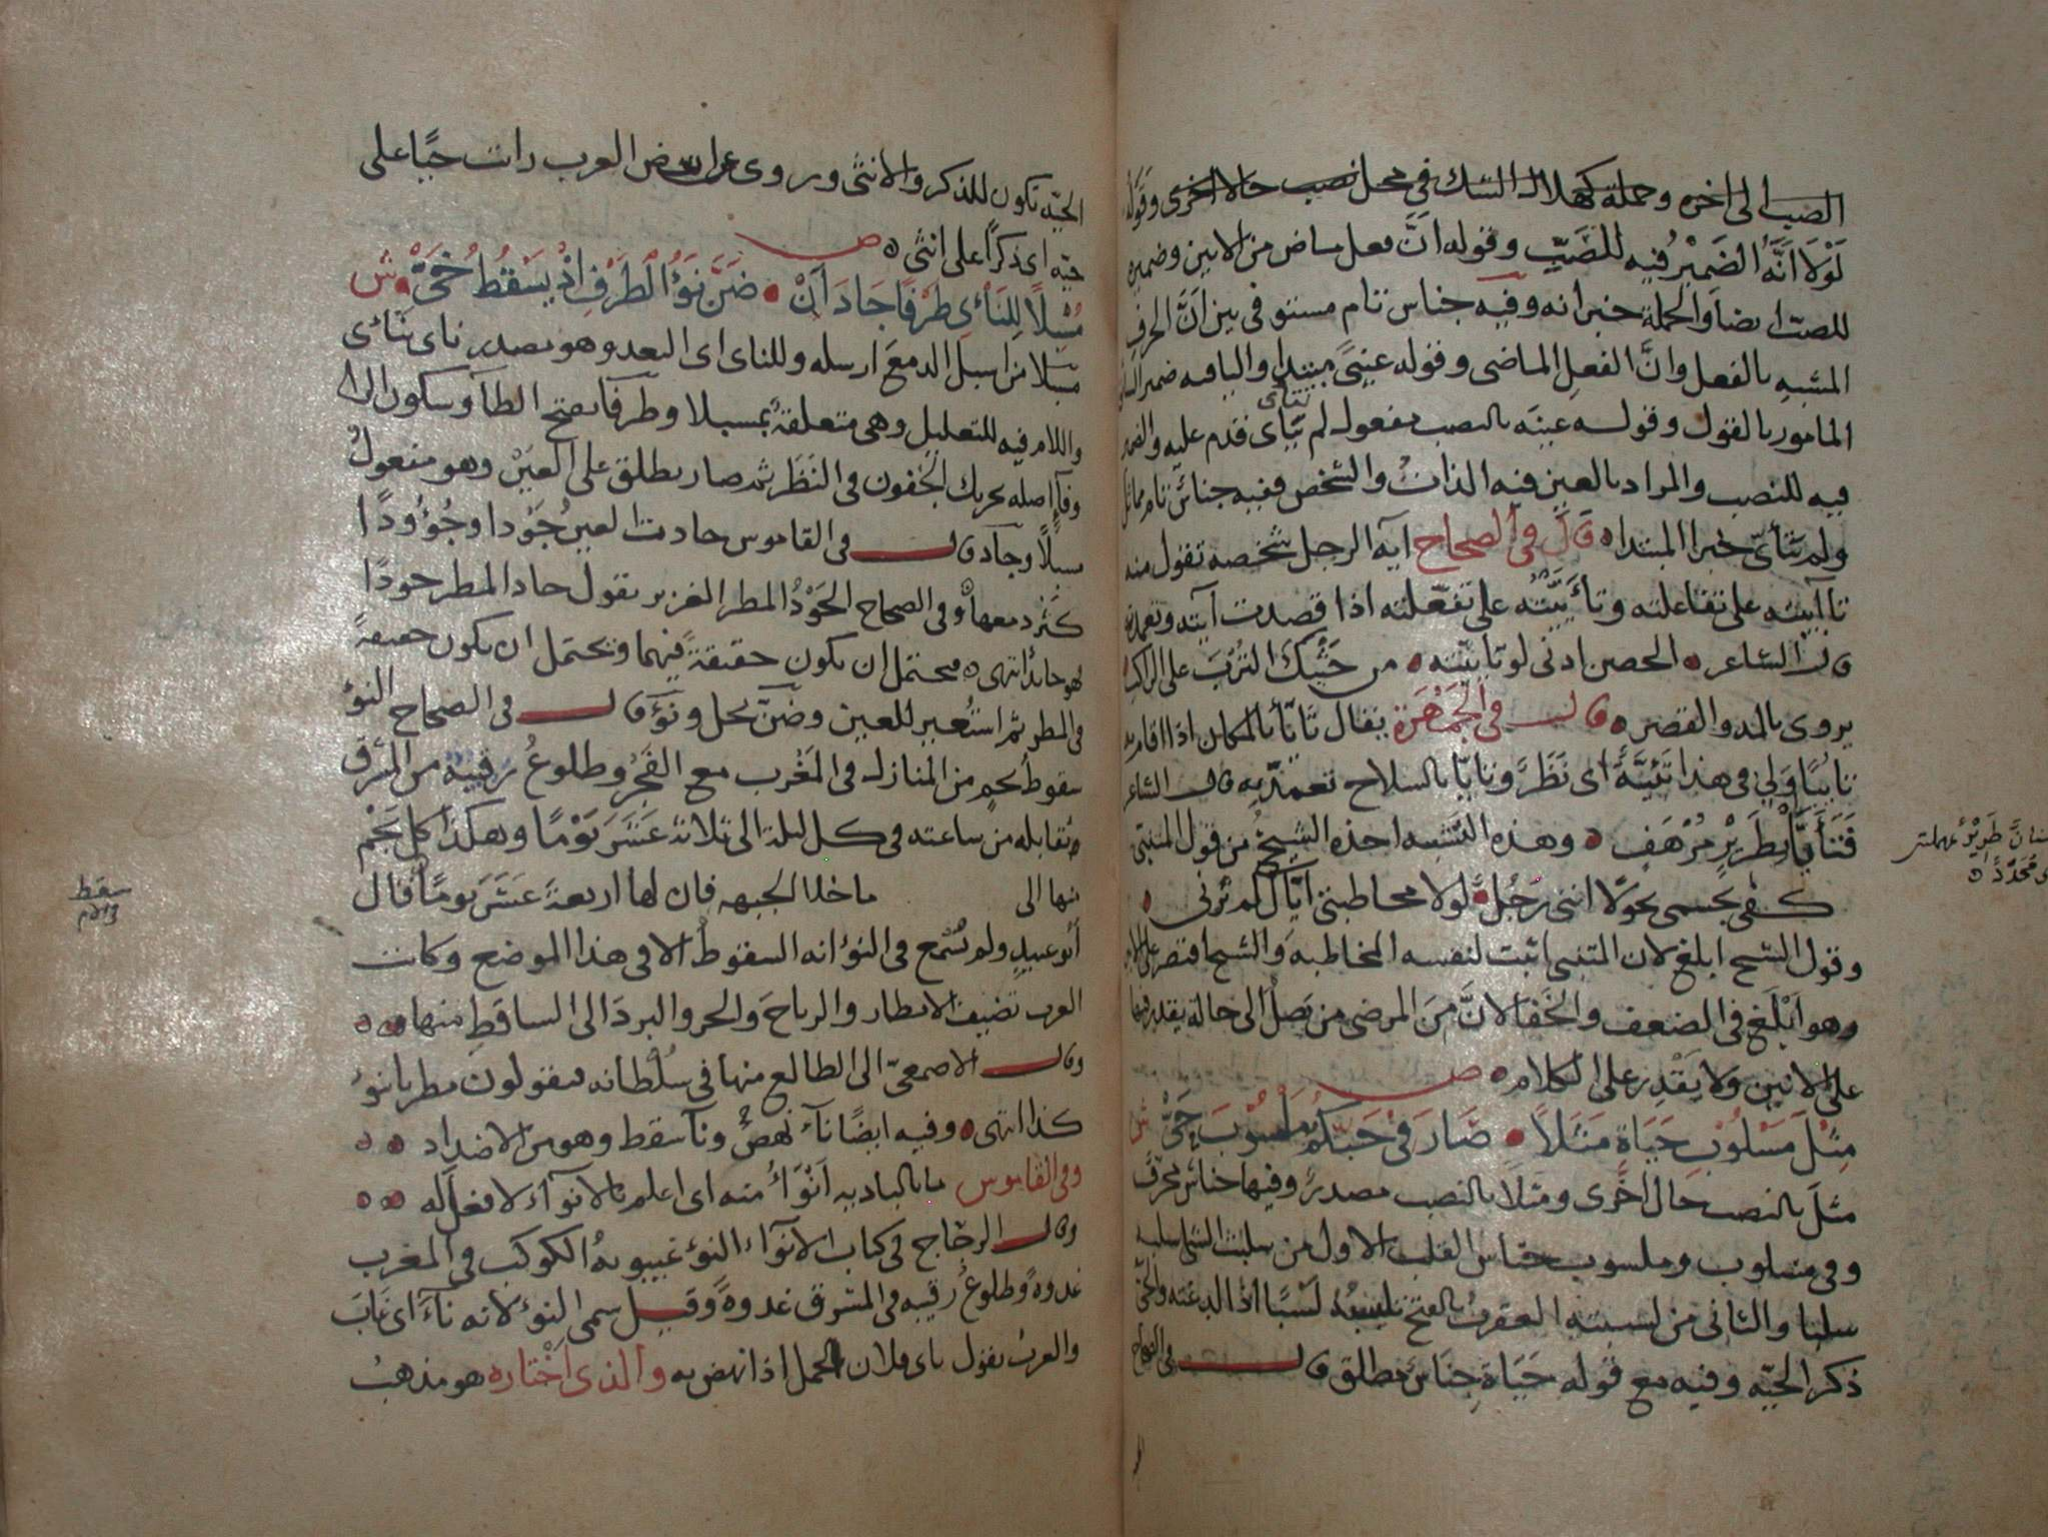 الصب الى اخره وجملة كهلال الشك في محل نصب حالا اخرى وقوله
لَوْلَا اَنَّهُ الضَميْرُ فيه للصَبِّ وقوله اَنَّ فعل ماض من الانين وضميره
للصب ايضا والجملة خبر انه وفيه جناس تام مستوفى بين اَنَّ الحرف
المشبه بالفعل وانَّ الفعل الماضى وقوله عينى مبتدا والياء فيه ضمير
المامور بالقول وقوله عينه بالنصب مفعول لم تتاى قدم عليه والضمير
تتاى
فيه للنصب والمراد بالعين فيه الذات والشخص ففيه جناس تام مماثل
ولم تتأىّ خبر المبتدا ه قال في الصحاح آية الرجل شخصه تقول منه
تاآييته على تفاعلته وتأيَّيْتُه على تفعّلته اذا قصدت آيته وتعمدته
قال الشاعر ه الحصن ادنى لو تاييته ه من حَثْيِكَ التُرْبَ على الراكب
يروى بالمد والقصر ه قال في الجَمْهَرة يقال تاَيّا بالمكان اذا اقام به
تاييًا ولي في هذا تَئِيَّةً اى نَظَرٌ وتايّا بالسلاح تعمدّ به قال الشاعر
فَتَأَيَّا بِطَرِيْرٍ مُرْهَفٍ ه وهذه التشبيه اخذه الشيخُ من قول المتنبى
كفى بجسمى نحولًا اننى رَجُلٌ لولا مخاطبتى اياك لم ترنى
وقول الشيخ ابلغ لان المتنبى اثبت لنفسه المخاطبه والشيخ اقتصر على
وهو اَبْلَغ في الضعف والخَفا لانَّ مِنَ المرضى من يَصِلُ الى حالة يقدر فيها
على الانين ولا يَقْدِر على الكلام ه ص
مِثْلَ مَسْلُوْبِ حَيَاةٍ مَثَلاً ه صَارَ فِيْ حُبِّكُمُ مَلْسُوْبَ حَيّْ ش
مثلَ بالنصب حال اخرى ومثلا بالنصب مصدر وفيها جناس محرف
وفي مسلوب وملسوب جناس القلب الاول من سلبت الشى سلبه
سلبا والثانى من لسبته العقرب بالفتح تلسبه لسْبًا اذا لدغته والحىّ
ذكر الحيّه وفيه مع قوله حَيَاةٍ جِنَاس مطلق قال في الصحاح
سنان طَرِيْرٌ بمهملتين
اى مُحَدَّدٌ ه
الحيّه تكون للذكر والانثى وروى عن بعض العرب رات حيًّا على
حيّه اى ذكرًا على انثى ه ص
مُسْبِلًا لِلنَأْىِ طَرْفًا جَادَ اَنْ ه ضَنَّ نَوْءُ الْطَرْفِ اِذْ يَسْقُطُ خَىّْ ه ش
مسبلًا من اسبل الدمعَ ارسله وللناى اى البعد وهو مصدر ناى يناى
واللام فيه للتعليل وهى متعلقةٌ بمسبلا وطرفا بفتح الطآ وسكون الرا
وفآ اصله تحريك الجفون في النَظَر ثم صار يطلق على العَيْنِ وهو مفعولُ
مسبلًا وجآد قال في القاموس جادت العينُ جَوْدا وجُؤُودًا
كَثُر دمعها وفي الصحاح الجَوْدُ المطر الغزير تقول جاد المطر جودًا
فهو جائد انتهى ه فيحتمل ان يكون حقيقةً فيهما ويحتمل ان يكون حقيقةً
في المطر ثم استُعير للعين وضنّ بخل ونَوْء قال في الصحاح النوْءُ
سقوط نجم من المنازل في المَغْرب مع الفَجْر وطلوعُ رقيبه من المشرق
يُقابله من ساعته في كل ليلة الى ثلاثة عَشَرَ يَوْمًا وهكذا كل نَجْم
منها الى ما خلا الجبهه فان لها اربعةَ عَشَرَ يومًا قال
أبو عبيد ولم نُسْمع في النوْءِ انه السقوطُ الا في هذا الموضع وكانت
العرب تضيف الامطار والرياحَ والحر والبردَ الى الساقطِ منها ه
وقال الاصمعىّ الى الطالع منها في سُلْطانه فيقولون مطرنا بنوْءِ
كذا انتهى ه وفيه ايضًا نآءَ نَهَضَ ونآ سقط وهو من الاضداد
وفي القاموس ما بالباديه اَنْوَأُ منه اى اعلم بالانوآء لا فعل له
وقال الزجّاج في كتاب الانوآء النوْءُ غيبوبةُ الكوكب في المغرب
غدوةً وطلوعُ رقيبه في المشرق غدوةً وقيل سمى النوْءُ لانه نآءَ اى غَابَ
والعربُ تقول ناى فلان بالحمل اذا نهض به والذى اَخْتاره هو مذهبُ
سقط